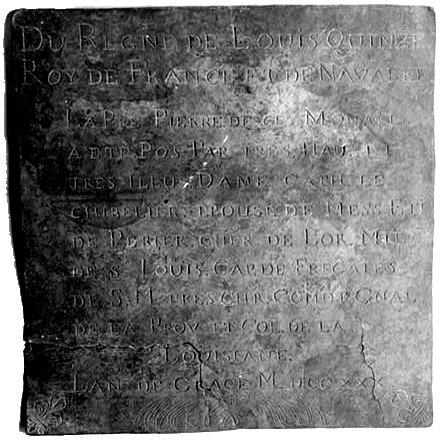 DU REGNE DE LOUIS QUINZE
ROY DE FRANCE ET DE NAVARRE
LA PRS PIERRE DE CE MONAST
A ETE POS PAR TRES HAU ET
TRES ILLUS DAME CATH LE
CHIBELIER EPOUSE DE MESS ET
DE PERIER CHER DE L'OR MIL
DE S LOUIS CAP DE FREGATES
DE S M TRES CHR COMDT GNAL
DE LA PROV ET COL DE LA
LOUISIANE
LAN DE GRACE M DCC XXX